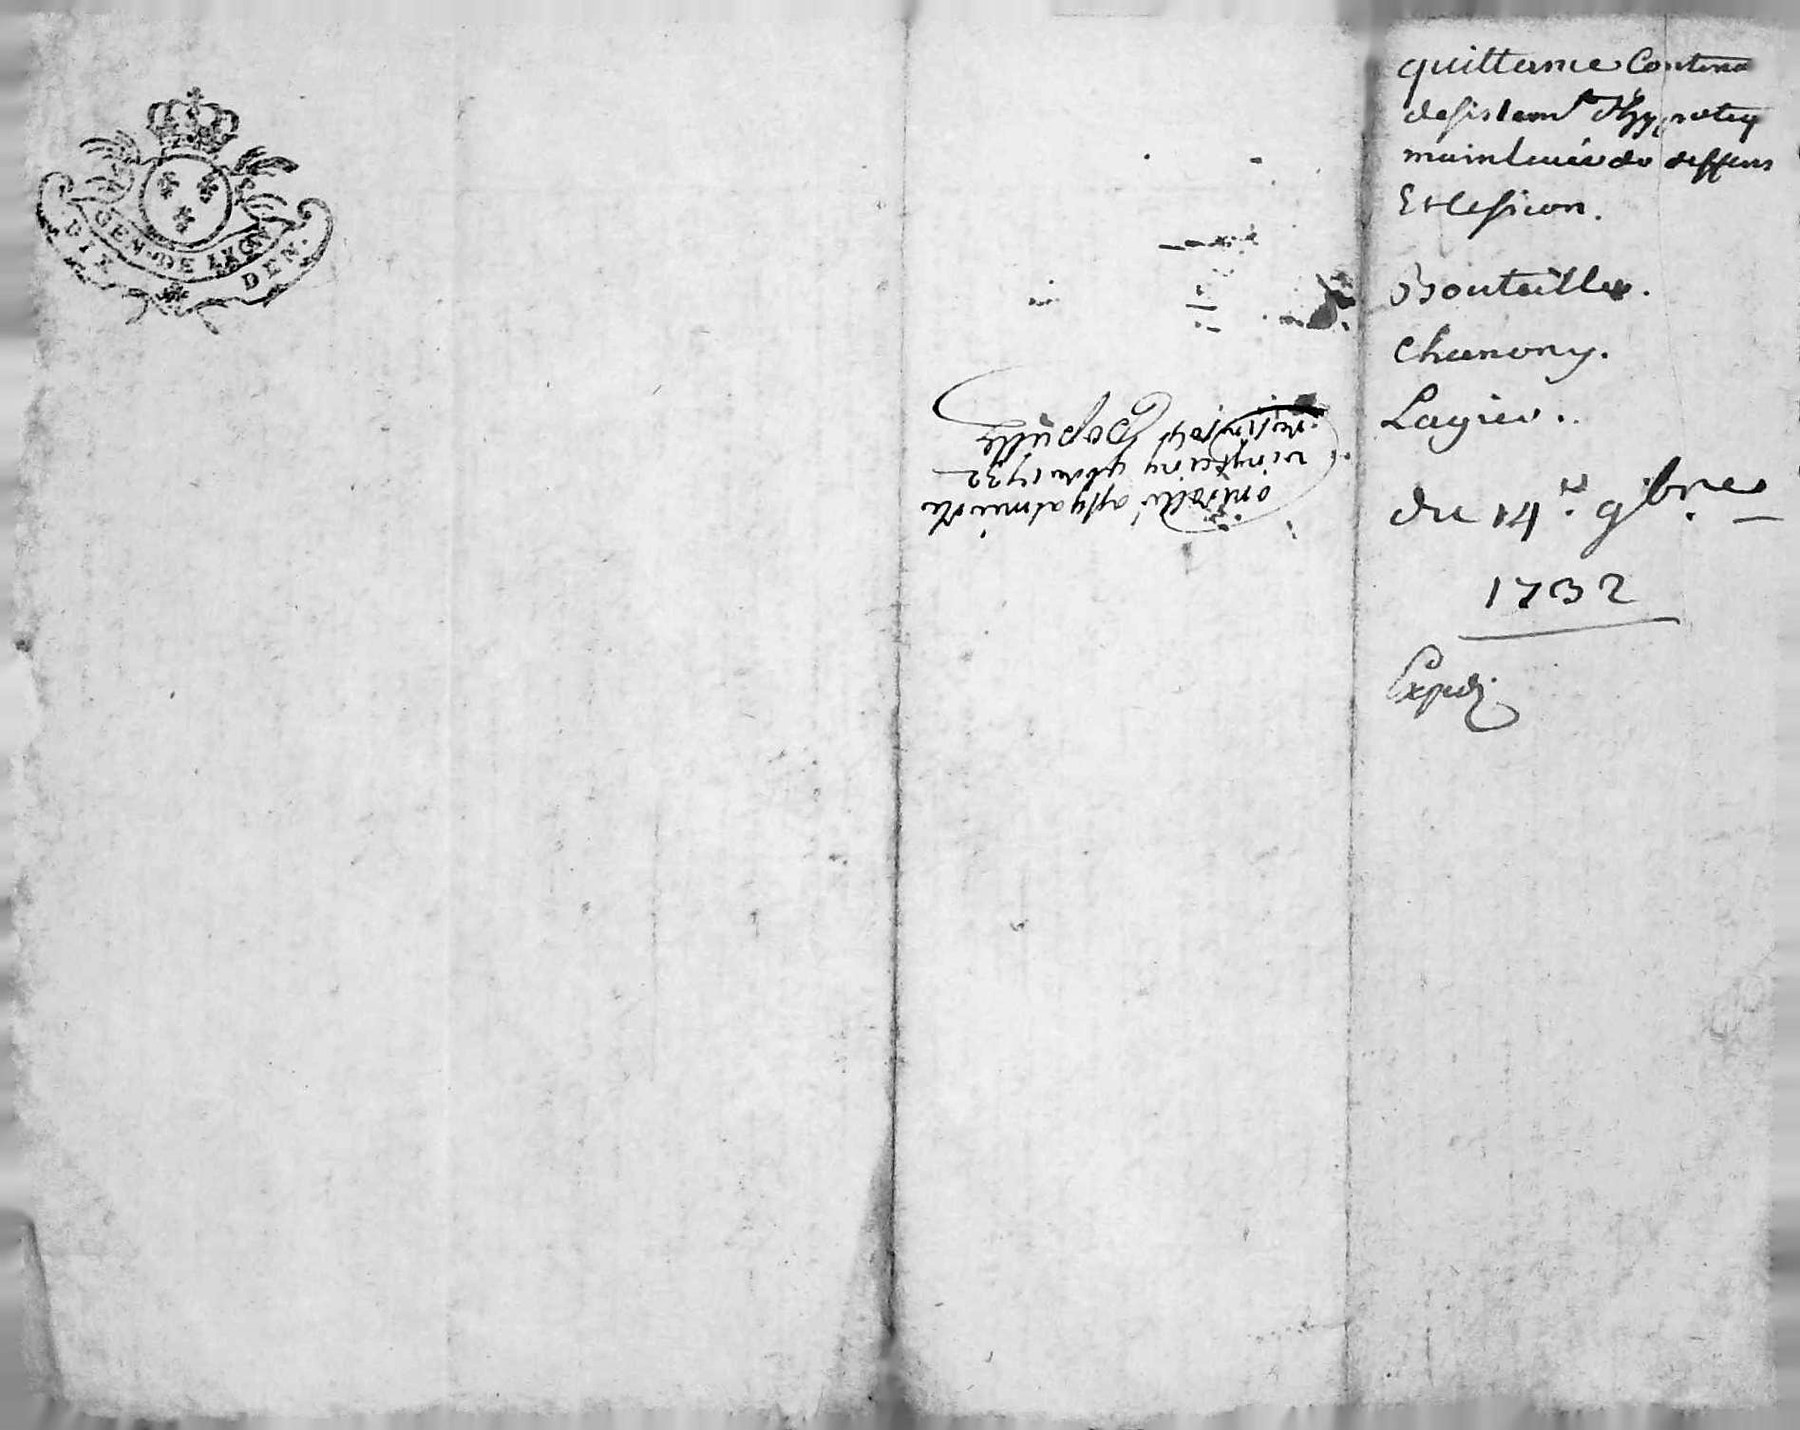 GEN. DE LYON
DIX DEN.
quittance Contena
desistemt d'hypoteq
mainlevée de deffens
Et Cession.
Bouteille.
Chanony.
Lagier.
du 14e. 9bre
1732
Expedi
ontrollé a
vingt cinq 9bre 1732